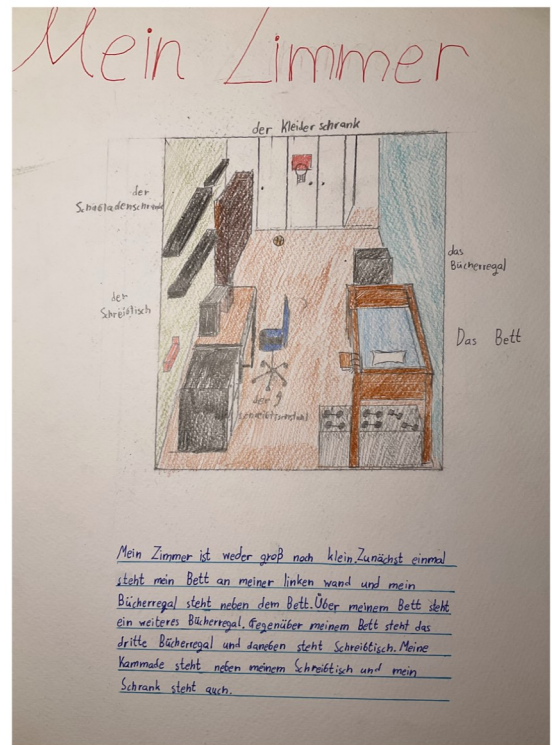 Mein Zimmer
der Kleiderschrank
der
Schubladenschrank
das
Bücherregal
der
Schreibtisch
Das Bett
der
Schreibtischstuhl
Mein Zimmer ist weder groß noch klein. Zunächst einmal
steht mein Bett an meiner linken wand und mein
Bücherregal steht neben dem Bett. Über meinem Bett steht
ein weiteres Bücherregal. Gegenüber meinem Bett steht das
dritte Bücherregal und daneben steht Schreibtisch. Meine
Kammade steht neben meinem Schreibtisch und mein
Schrank steht auch.